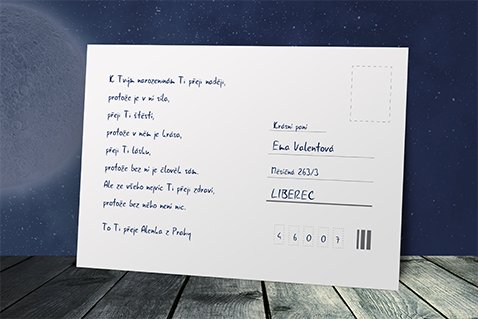 K Tvým narozeninám Ti přeji naději,
protože je v ní síla,
přeji Ti štěstí,
protože v něm je krása,
přeji Ti lásku,
protože bez ní je člověk sám.
Ale ze všeho nejvíc Ti přeji zdraví,
protože bez něho není nic.
To Ti přeje Alenka z Prahy
Krásní paní
Ema Valentová
Měsíčná 263/3
LIBEREC
46007